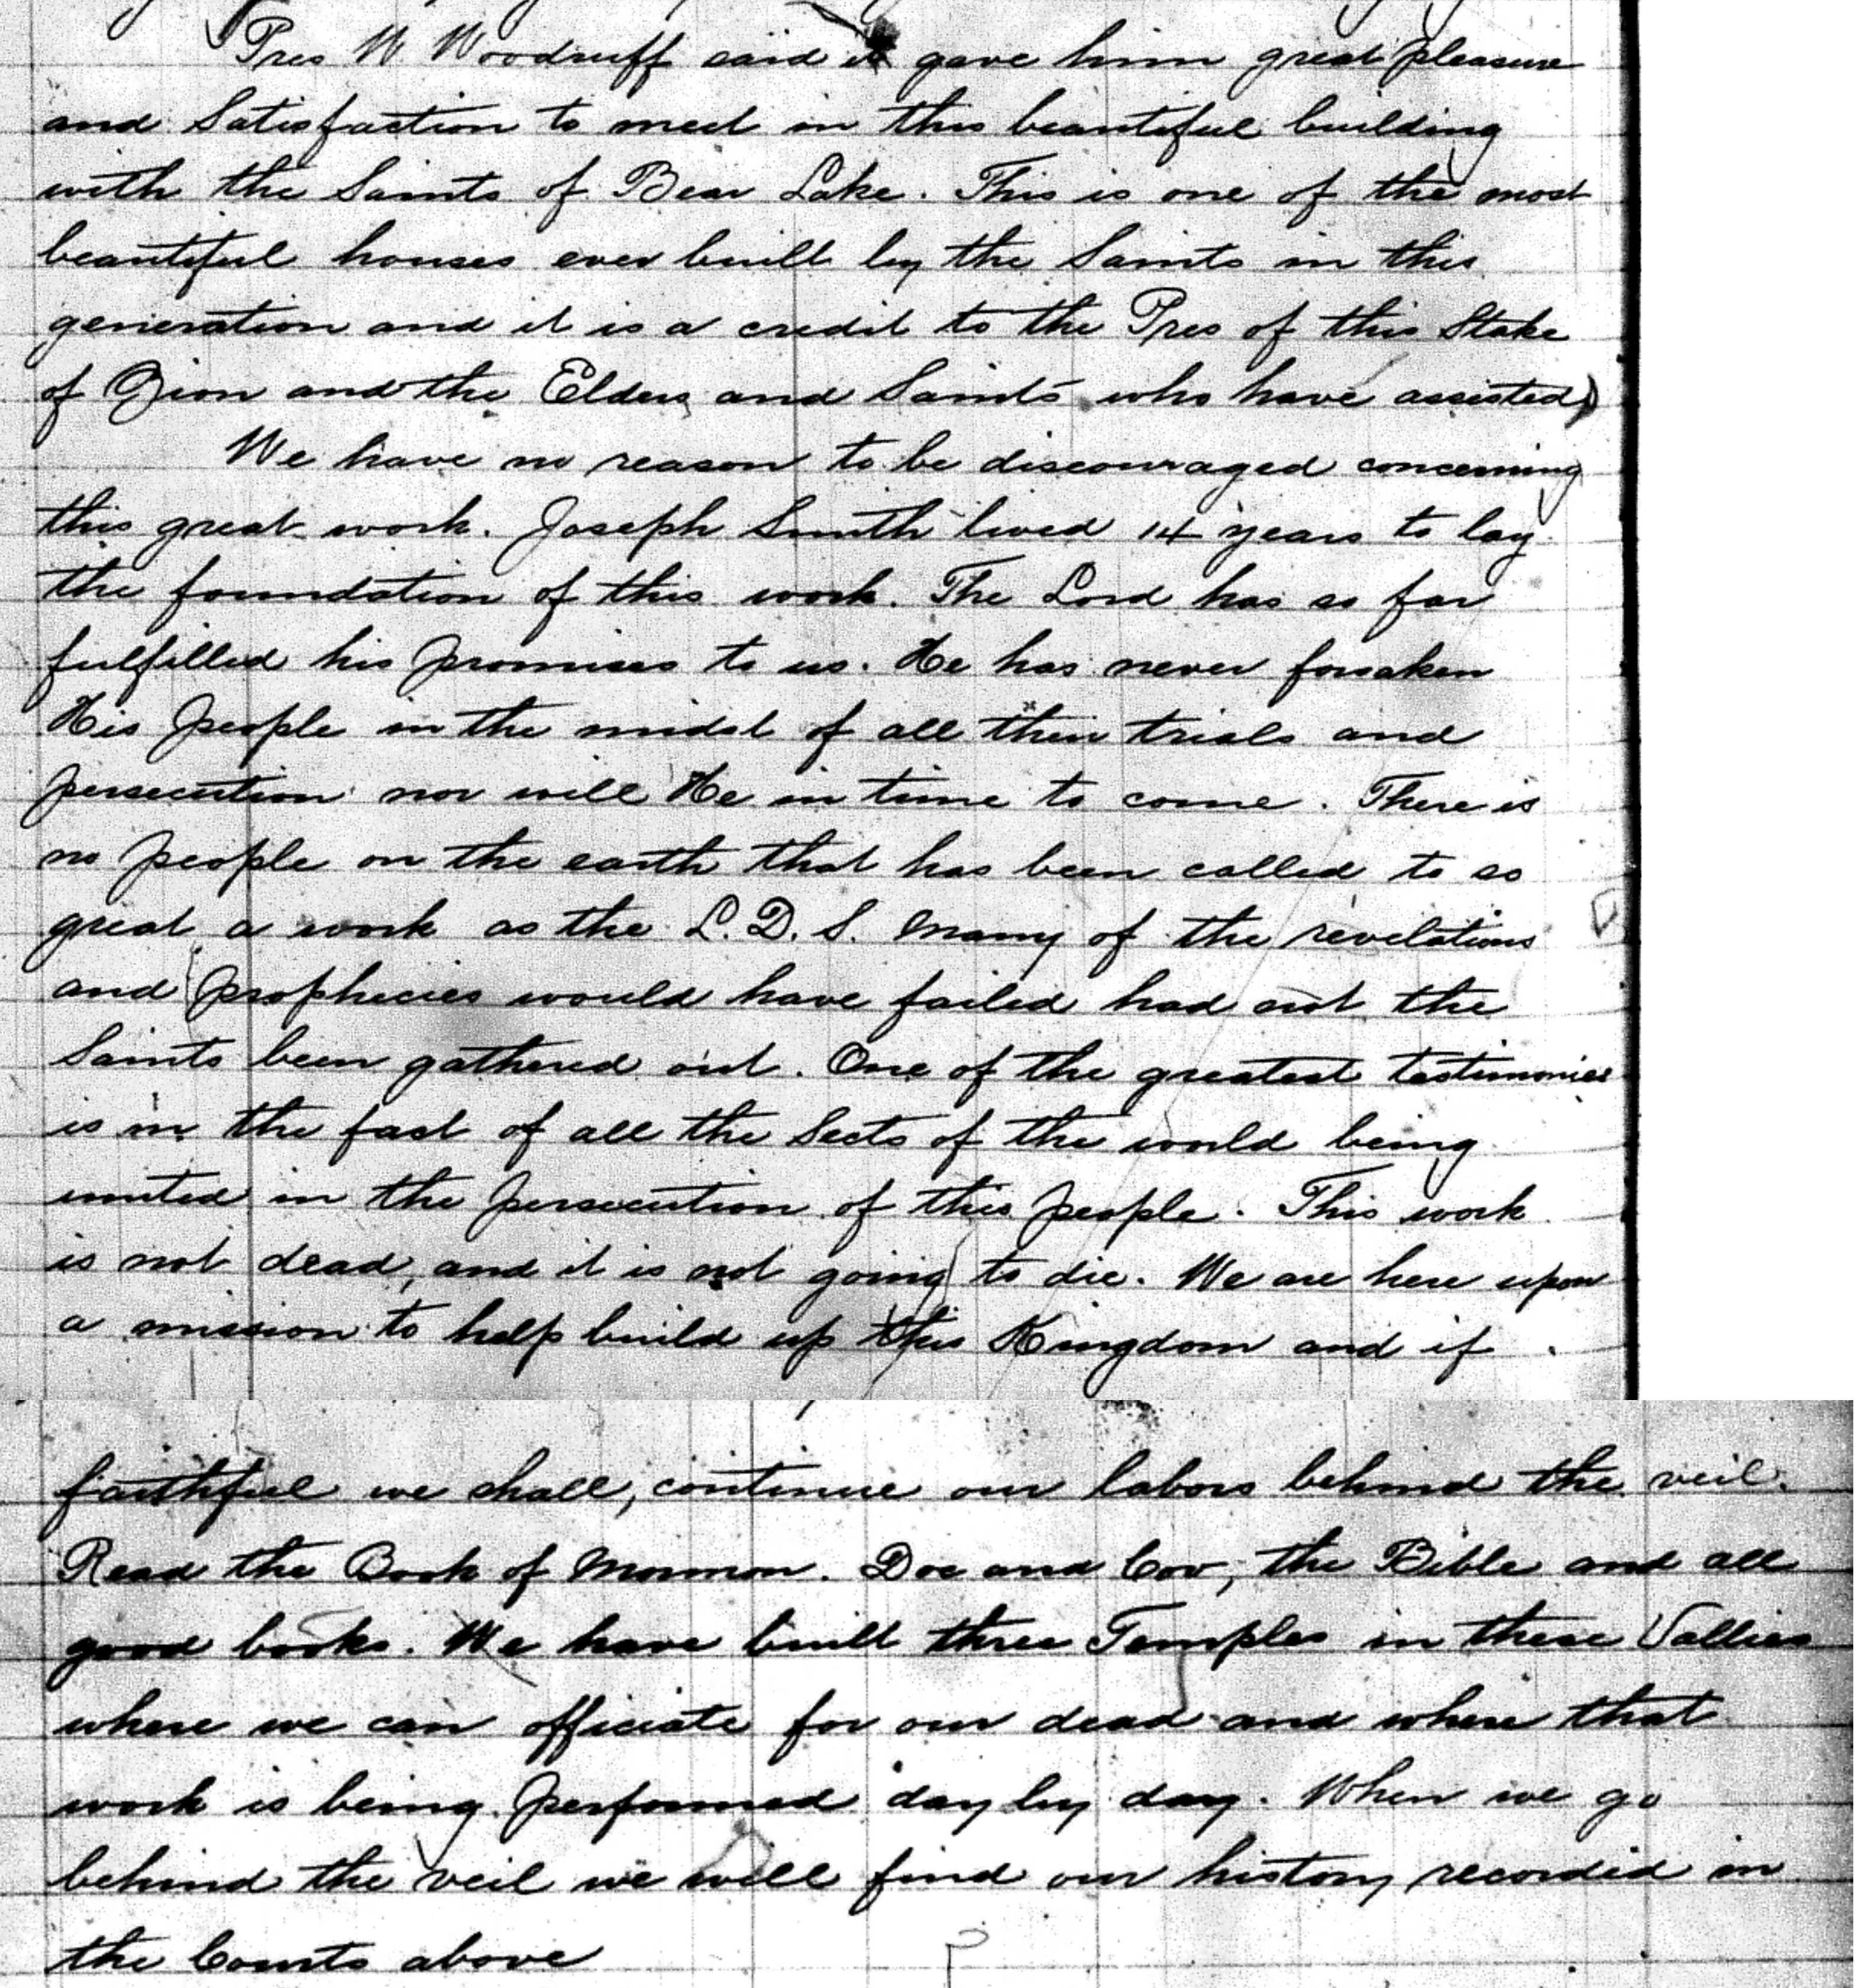 Pres W Woodruff said it gave him great pleasure
and Satisfaction to meet in this beautiful building
with the Saints of Bear Lake. This is one of the most
beautiful houses ever built by the Saints in this
generation and it is a credit to the Pres of this Stake
of Zion and the Elders and Saints who have assisted
We have no reason to be discouraged concerning
this great work. Joseph Smith lived 14 years to lay
the foundation of this work. The Lord has so far
fulfilled his promises to us. He has never forsaken
His people in the midst of all their trials and
persecution nor will He in time to come. There is
no people on the earth that has been called to so
great a work as the L. D. S. Many of the revelations
and prophecies would have failed had not the
Saints been gathered out. One of the greatest testimonies
is in the fact of all the Sects of the world being
united in the persecution of this people. This work
is not dead, and it is not going to die. We are here upon
a mission to help build up this Kingdom and if
faithful we shall, continue our labors behind the veil.
Read the Book of Mormon. Doc and Cov, the Bible and all
good books. We have built three Temples in these Vallies
where we can officiate for our dead and where that
work is being performed day by day. When we go
behind the veil we will find our history recorded in
the Courts above